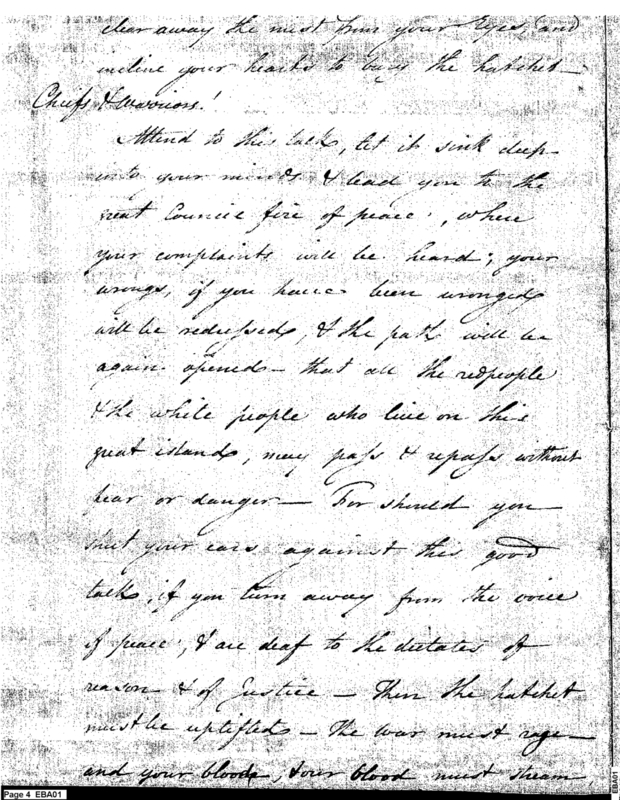 clear away the mist from your Eyes, and
incline your hearts to bury the hatchet—
Chiefs & Warriors!
Attend to this talk, let it sink deep
into your minds & lead you to the
great Council fire of peace, where
your complaints will be heard; your
wrongs, if you have been wronged
will be redressed, & the path will be
again opened— that all the redpeople
& the white people who live on this
great island, may pass & repass without
fear or danger— For should you
shut your ears against this good
talk, if you turn away from the voice
of peace, & are deaf to the dictates of
reason & of Justice— Then the hatchet
must be uplifted— The war must rage—
and your blood, & our blood must stream
Page 4 EBA01
EBA01